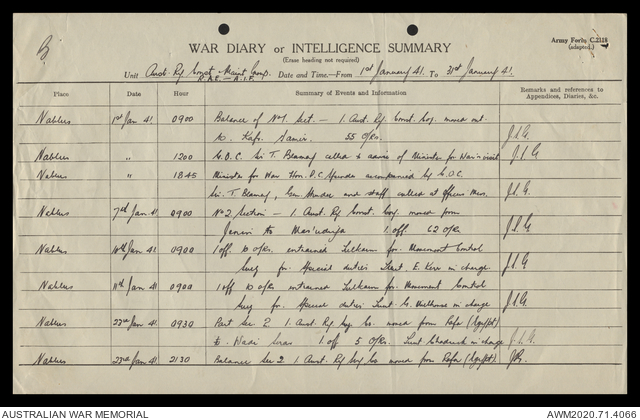 B
Army Form C.2118
(adapted.)
WAR DIARY or INTELLIGENCE SUMMARY
(Erase heading not required)
Unit Aust. Rly Const. & Maint. Group. R.A.E. – A.I.F. Date and Time—From 1st January 41. To 31st January 41.
Place Date Hour Summary of Events and Information Remarks and references to Appendices, Diaries, &c.
Nablus 1st Jan 41. 0900 Balance of No 1 Sect – 1 Aust. Rly Const. Coy. moved out
to Kafr Samir. 55 O/Rs. J.S.G.
Nablus " 1200 G.O.C. Sir T. Blamey called & advise of Minister for War's visit J.S.G.
Nablus " 1845 Minister for War Hon. P.C. Spender accompanied by G.O.C.
Sir T. Blamey, and staff called at Officers Mess. J.S.G.
Nablus 7th Jan 41. 0900 No 2 Section – 1 Aust. Rly Const. Coy. moved from
Jenin to Mas'udiya 1 off 62 O/Rs. J.S.G.
Nablus 10th Jan 41. 0900 1 off. 10 O/Rs entrained Tulkarm for Movement Control
for Special duties Lieut. E. Kerr in charge. J.S.G.
Nablus 11th Jan 41. 0900 1 off 10 O/Rs entrained Tulkarm for Movement Control
for Special duties Lieut. G. in charge J.S.G.
Nablus 22nd Jan 41. 0930 Part Sec 2 1. Aust. Rly Co. moved from Rafa (Egypt)
to Wadi 1 off 5 O/Rs. Lieut Chadwick in charge J.S.G.
Nablus 23rd Jan 41. 2130 Balance Sec 2. 1 Aust. Rly Co moved from Rafa (Egypt).
AUSTRALIAN WAR MEMORIAL
AWM2020.71.4066